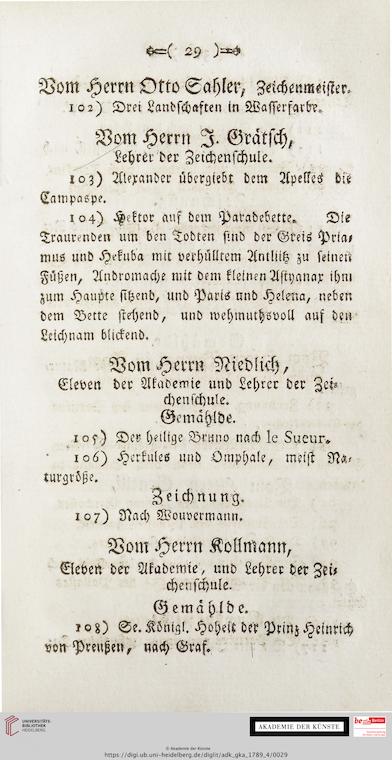 ( 29 )
Vom Herrn Otto Sahler, Zeichenmeister.
102) Drei Landschaften in Wasserfarbe.
Vom Herrn J. Grätsch,
Lehrer der Zeichenschule.
103) Alexander übergiebt dem Apelles die
Campaspe.
104) Hektor auf dem Paradebette. Die
Traurenden um den Todten sind der Greis Pria-
mus und Hekuba mit verhülltem Antlitz zu seinen
Füßen, Andromache mit dem kleinen Astyanax ihm
zum Haupte sitzend, und Paris und Helena, neben
dem Bette stehend, und wehmuthsvoll auf den
Leichnam blickend.
Vom Herrn Niedlich,
Eleven der Akademie und Lehrer der Zei-
chenschule.
Gemählde.
105) Der heilige Bruno nach le Sueur.
106) Herkules und Omphale, meist Na-
turgröße.
Zeichnung.
107) Nach Wouvermann.
Vom Herrn Kollmann,
Eleven der Akademie, und Lehrer der Zei-
chenschule.
Gemählde.
108) Se. Königl. Hoheit der Prinz Heinrich
von Preußen, nach Graf.
UNIVERSITÄTS-
BIBLIOTHEK
HEIDELBERG
AKADEMIE DER KÜNSTE
be Berlin
© Akademie der Künste
https://digi.ub.uni-heidelberg.de/diglit/adk_gka_1789_4/0029